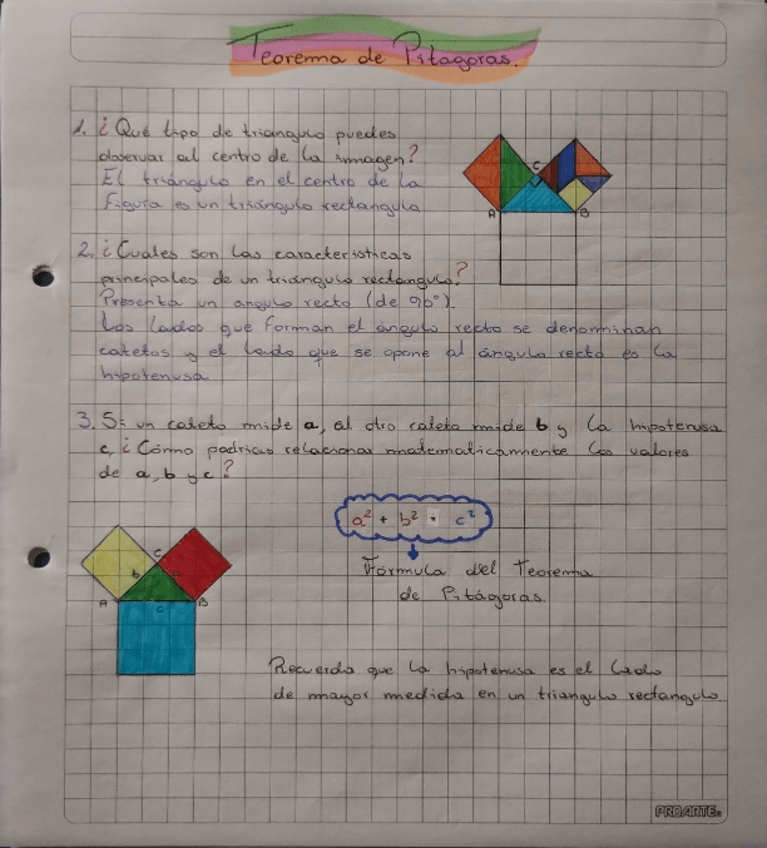 Teorema de Pitagoras.
1. ¿Qué tipo de triangulo puedes
observar al centro de la imagen?
El triángulo en el centro de la
Figura es un triángulo rectangula
A
C
B
2. ¿Cuales son las caracteristicas
principales de un triángulo rectangulo?
Presenta un angulo recto (de 90°).
Los lados que forman el ángulo recto se denominan
catetos y el lado que se opone al ángulo recto es la
hipotenusa
3. Si un cateto mide a, el otro cateto mide b y la hipotenusa
c, ¿Cómo podrías relacionar matematicamente los valores
de a, b y c?
a² + b² · c²
Fórmula del Teorema
de Pitágoras.
C
b
a
A
B
c
Recuerda que la hipotenusa es el lado
de mayor medida en un triangulo rectangulo
PROARTE